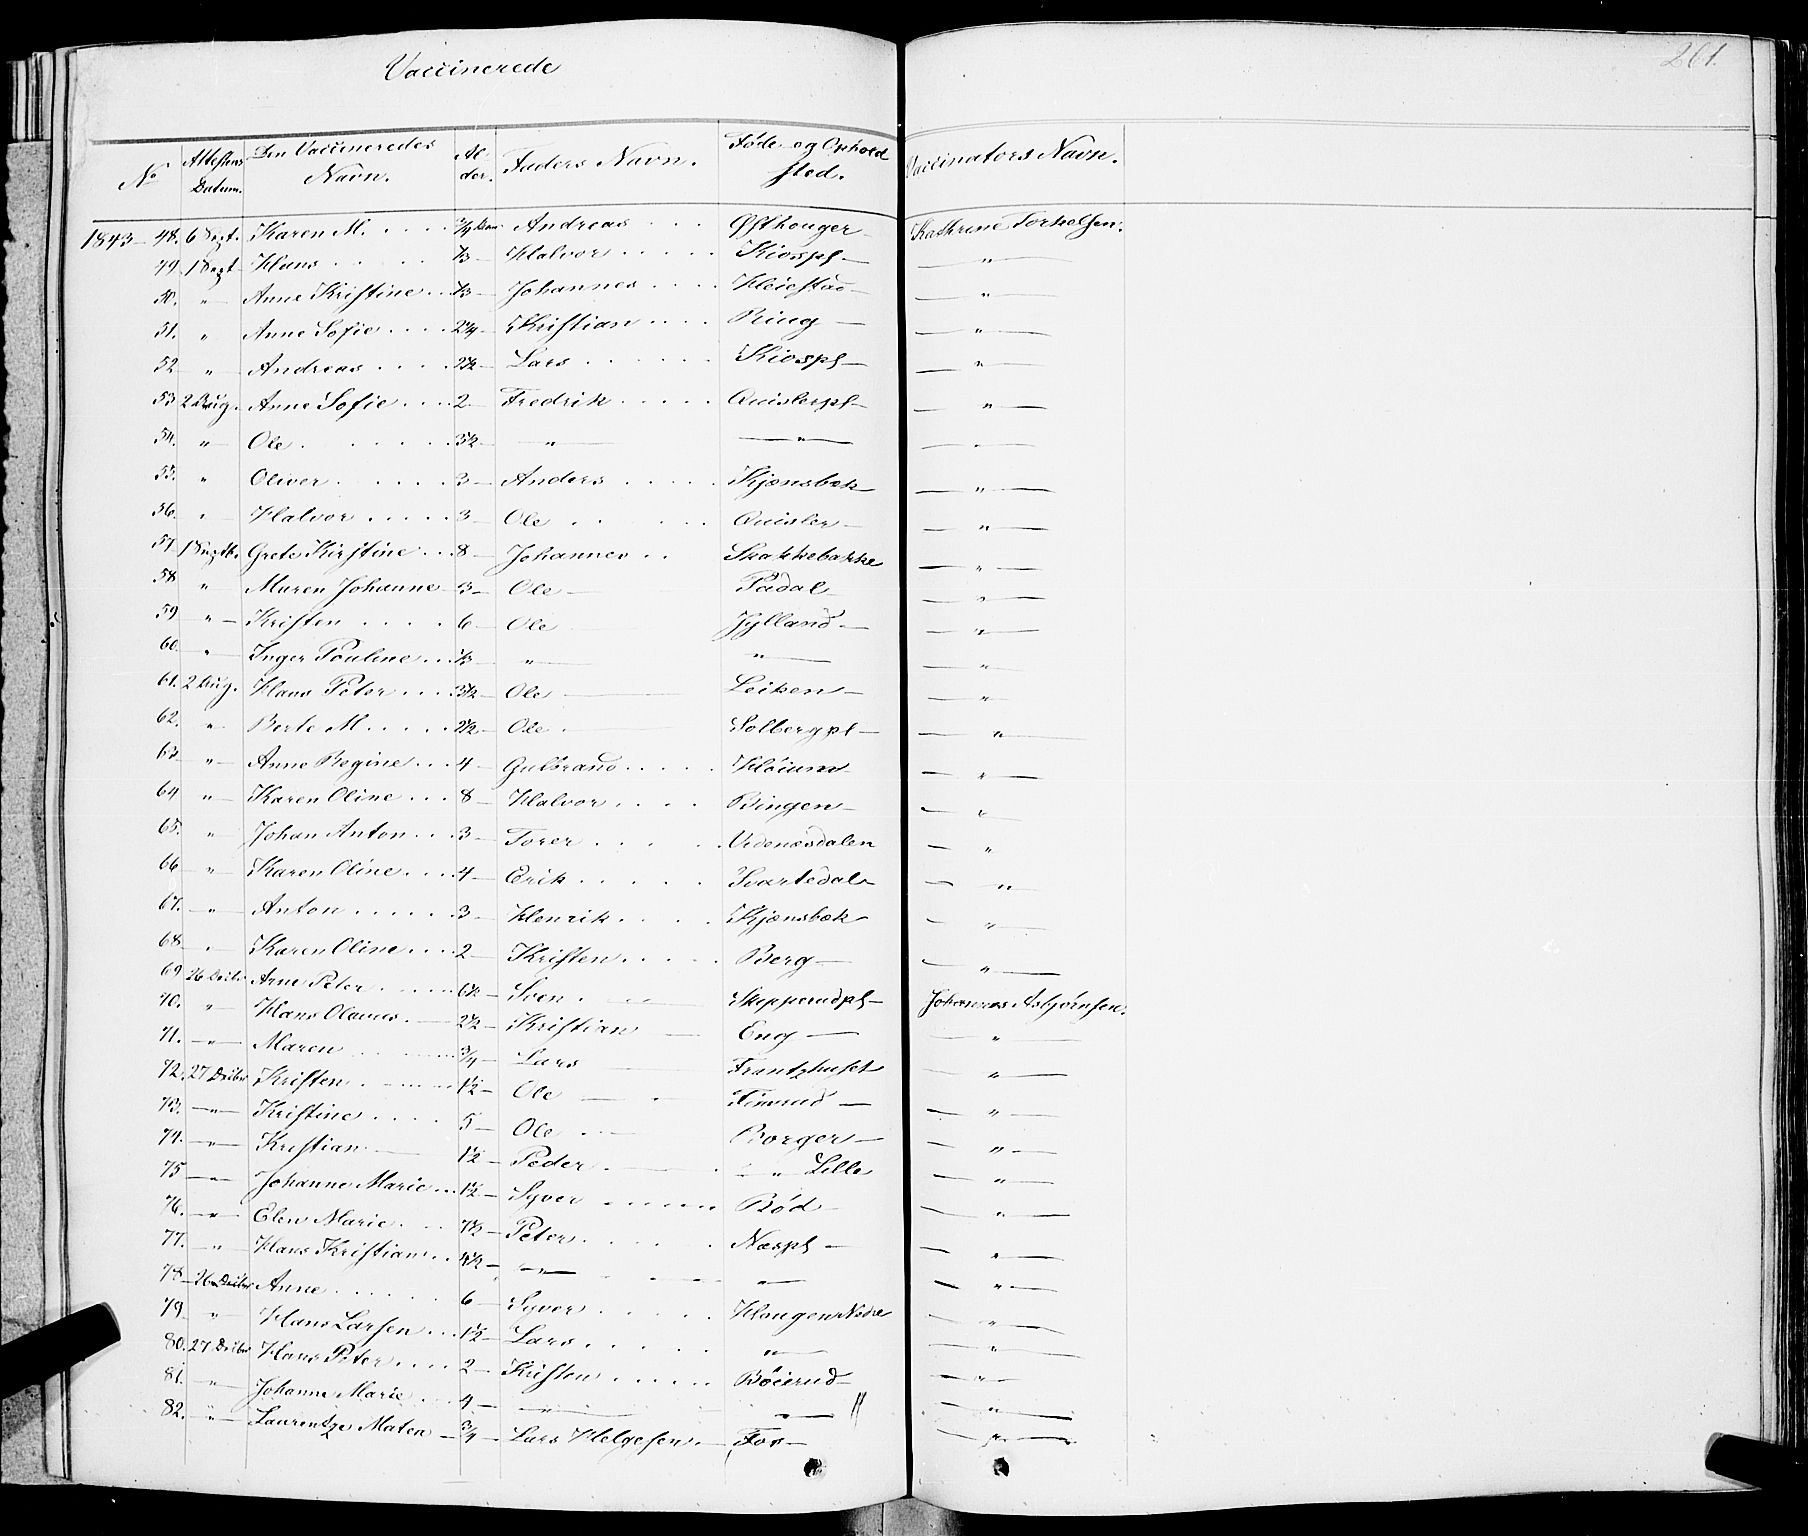 Vaccinerede
261.
No Attestens Datum. Den Vaccineredes Navn. Al- der. Faders Navn. Føde- og Ophold sted. Vaccinators Navn.
1843 48. 6 Sept. Karen M. .... 3/4 Aar Andreas ... Østhouger Kathrine Torkelsen.
49 1 Sept Hans ..... 1/3 — Halvor ..... Kiospl — — " —
50. " — Anne Kristine .. 1/3 — Johannes .... Heiestad — — " —
51. " Anne Sofie .... 2 1/4 — Kristian .... Ring — — " —
52 " — Andreas .... 2 1/2 — Lars ...... Kiospl — — " —
53 2 Aug. Anne Sofie .... 2 — Fredrik ..... Quislerpl — — " —
54. " — Ole ...... 3 1/2 — — " — — " — — " —
55. " Oliver ...... 3 — Anders ..... Kjænsbæk — — " —
56. " Halvor ..... 3 — Ole ..... Quisler — — " —
57 1 Septb. Grete Kirstine ... 8 — Johannes .. Skakkebakke — " —
58 " Maren Johanne 3 — Ole — Padal — " —
59 " — Kristen .... 6 — Ole Jylland — — " —
60. " Inger Pouline ... 1/3 — " — " — — " —
61. 2 Aug. Hans Peter .... 3 1/2 — Ole — Leiken — — " —
62. " Berte M ..... 2 1/2 — Ole . — Solbergpl — — " —
63 " — Anne Regine ... 4 — Gulbrand ..... Høium — " —
64 " — Karen Oline ... 8 — Halvor .... Bingen — — " —
65. " Johan Anton ... 3 — Torer ..... Vedenæsdalen — "
66 " — Karen Oline .... 4 — Erik ..... Svartedal — — " —
67. — " — Anton ...... 3 — Henrik .... Kjænsbæk — " —
68 " Karen Oline .... 2 — Kristen ..... Berg — — " —
69 26 Decbr Arne Peter ..... 6 1/2 — Sven . — Skipperudpl — Johannes Asbjørnsen.
70. " Hans Olavus. — 2 1/2 — Kristian — Eng — — " —
71. — " — Maren ..... 3/4 — Lars — Frantzhuset — " —
72. 27 Decbr Kristen ..... 1 1/2 — Ole — Fimrud — — " —
73. — " — Kristine .... 5 — Ole .. — Borger — — " —
74. — " — Kristian — 1 1/2 — Peder . — " Lille — " —
75 — " — Johanne Marie ... 1 1/2 — Syver ..... Bød — — " —
76. — " — Elen Marie. ... 7 1/2 — Peter ...... Næspl — — " —
77. — " — Hans Kristian .. 4 1/2 — — " — — " — — " —
78 — 26 Decbr Anne ...... 6 — Syver ..... Haugen Nedre — " —
79. " Hans Larsen ... 1 1/2 — Lars ..... — " — — " —
80. 27 Decbr Hans Peter .... 2 — Kristen ...... Bøierud — — " —
81. — " — Johanne Marie ... 4 — — " — — " — — " —
82. " — Laurentze Matea — 3/4 — Lars Helgesen — Fos — — " —